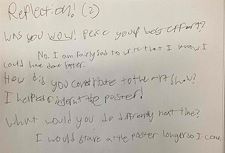 Reflection! (2)
Was you WOW! Piece your best effort?
No. I am fairly sad to write that I know I
could have done better.
How did you contribute to the art show?
I helped decorate the poster!
What would you do differently next time?
I would at the poster longer so I can